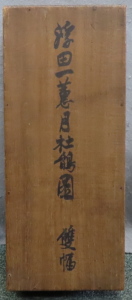 浮田一蕙月杜鵑図
雙幅